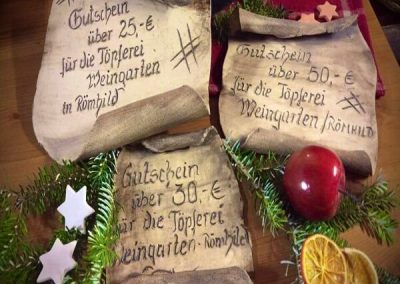 Gutschein
über 25,-€
für die Töpferei
Weingarten
in Römhild
Gutschein
über 50,-€
für die Töpferei
Weingarten/RÖMHILD
Gutschein
über 30,-€
für die Töpferei
Weingarten-Römhild